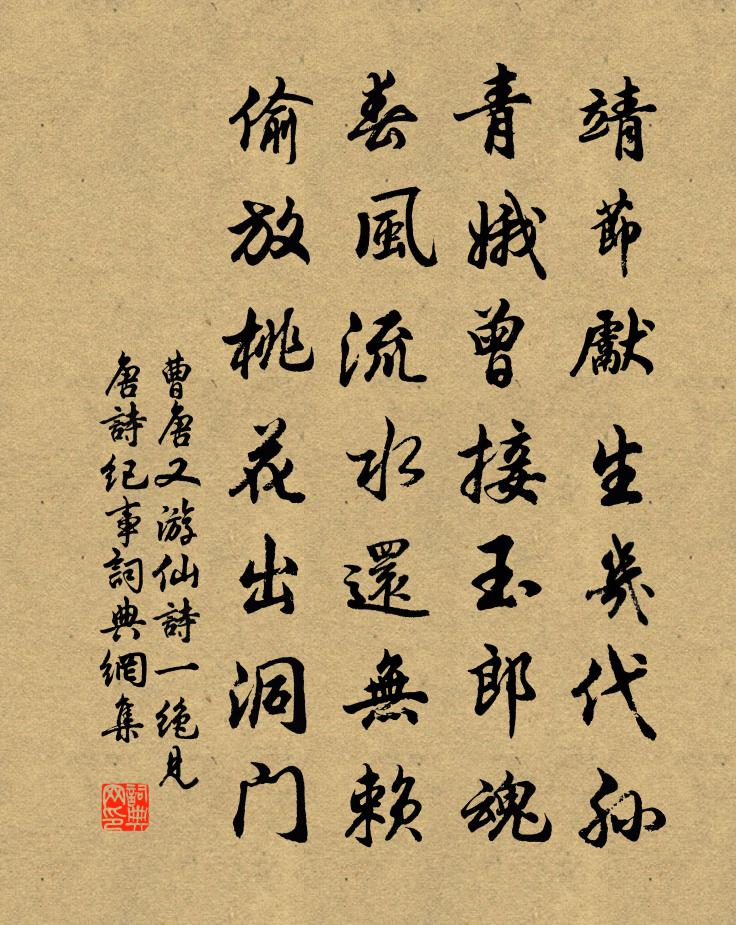 靖節獻生幾代孫
青娥曾接玉郎魂
春風流水還無賴
偷放桃花出洞門
曹唐又游仙詩一絕見
唐詩紀事詞典網集
詞典网印